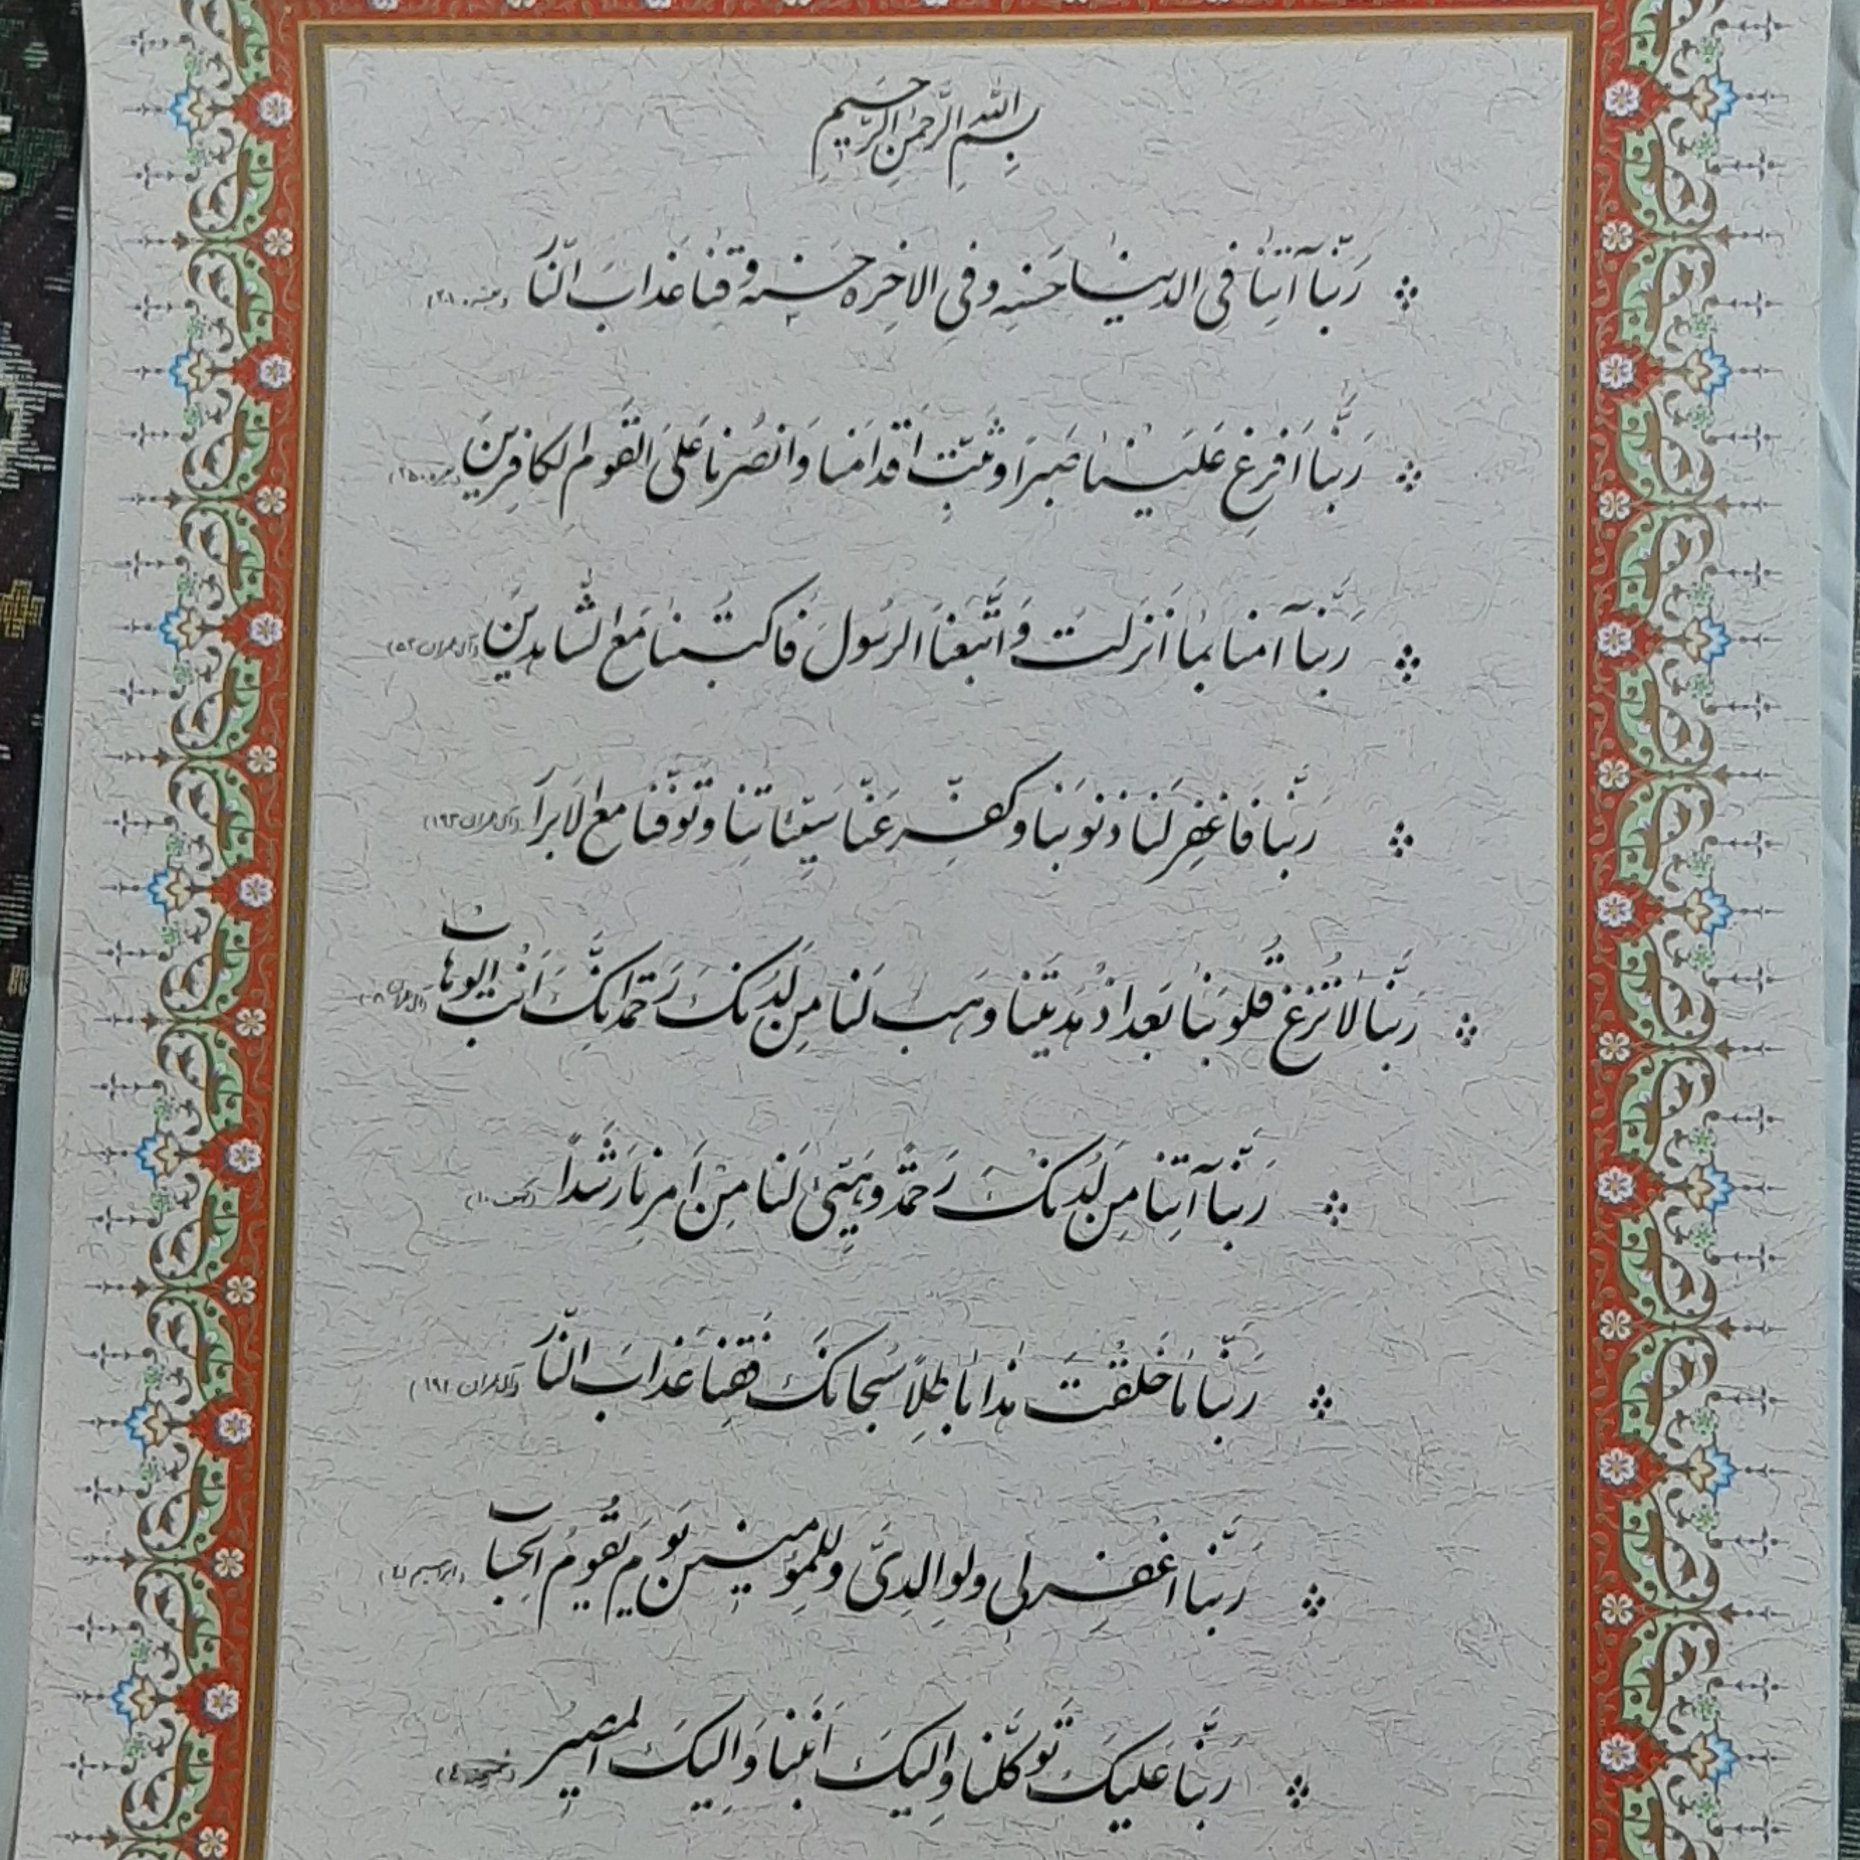 بِسمِ اللهِ الرَّحمٰنِ الرَّحیمِ
رَبَّنا آتِنا فِی الدنیا حَسَنِه وَ فیِ الاخِرَه حَسَنه وَقِنا عَذابَ النّار (بقره ۲۰۱)
رَبَّنا اَفرِغ عَلَینا صَبرَاً وَ ثَبِّت اَقدامَنا وَانصُرنا عَلَی القَومِ الکافِرینَ (بقره ۲۵۰)
رَبَّنا آمنا بِما اَنزَلتَ وَ اتَّبَعنَا الرسُولَ فَاکتُبنا مَعَ الشّاهدینَ (آل عمران ۵۳)
رَبَّنا فَاغفِر لَنا ذنوبَنا وَ کَفِّر عَنّا سَیّئاتِنا وَ تَوَفَّنا مع الاَبرار (آل عمران ۱۹۳)
رَبَّنا لا تُزغ قُلوبَنا بَعدَ اذ هَدَیتَنا وَ هَب لَنا مِن لَدُنکَ رَحمة اِنَّکَ اَنتَ الوهاب (آل عمران ۸)
رَبَّنا آتِنا مِن لَدُنکَ رَحمَةً وَ هَیّئ لَنا مِن اَمرِنا رَشَداً (کهف ۱۰)
رَبَّنا ما خَلَقتَ هٰذا باطِلاً سُبحانَکَ فَقِنا عَذابَ النّار (آل عمران ۱۹۱)
رَبَّنا اغفِر لی وَ لِوالِدَیَّ وَ لِلمؤمِنینَ یَومَ یَقومُ الحِساب (ابراهیم ۴۱)
رَبَّنا عَلَیکَ تَوَکَّلنا وَ اِلَیکَ اَنَبنا وَ اِلَیکَ المَصیر (ممتحنه ۴)